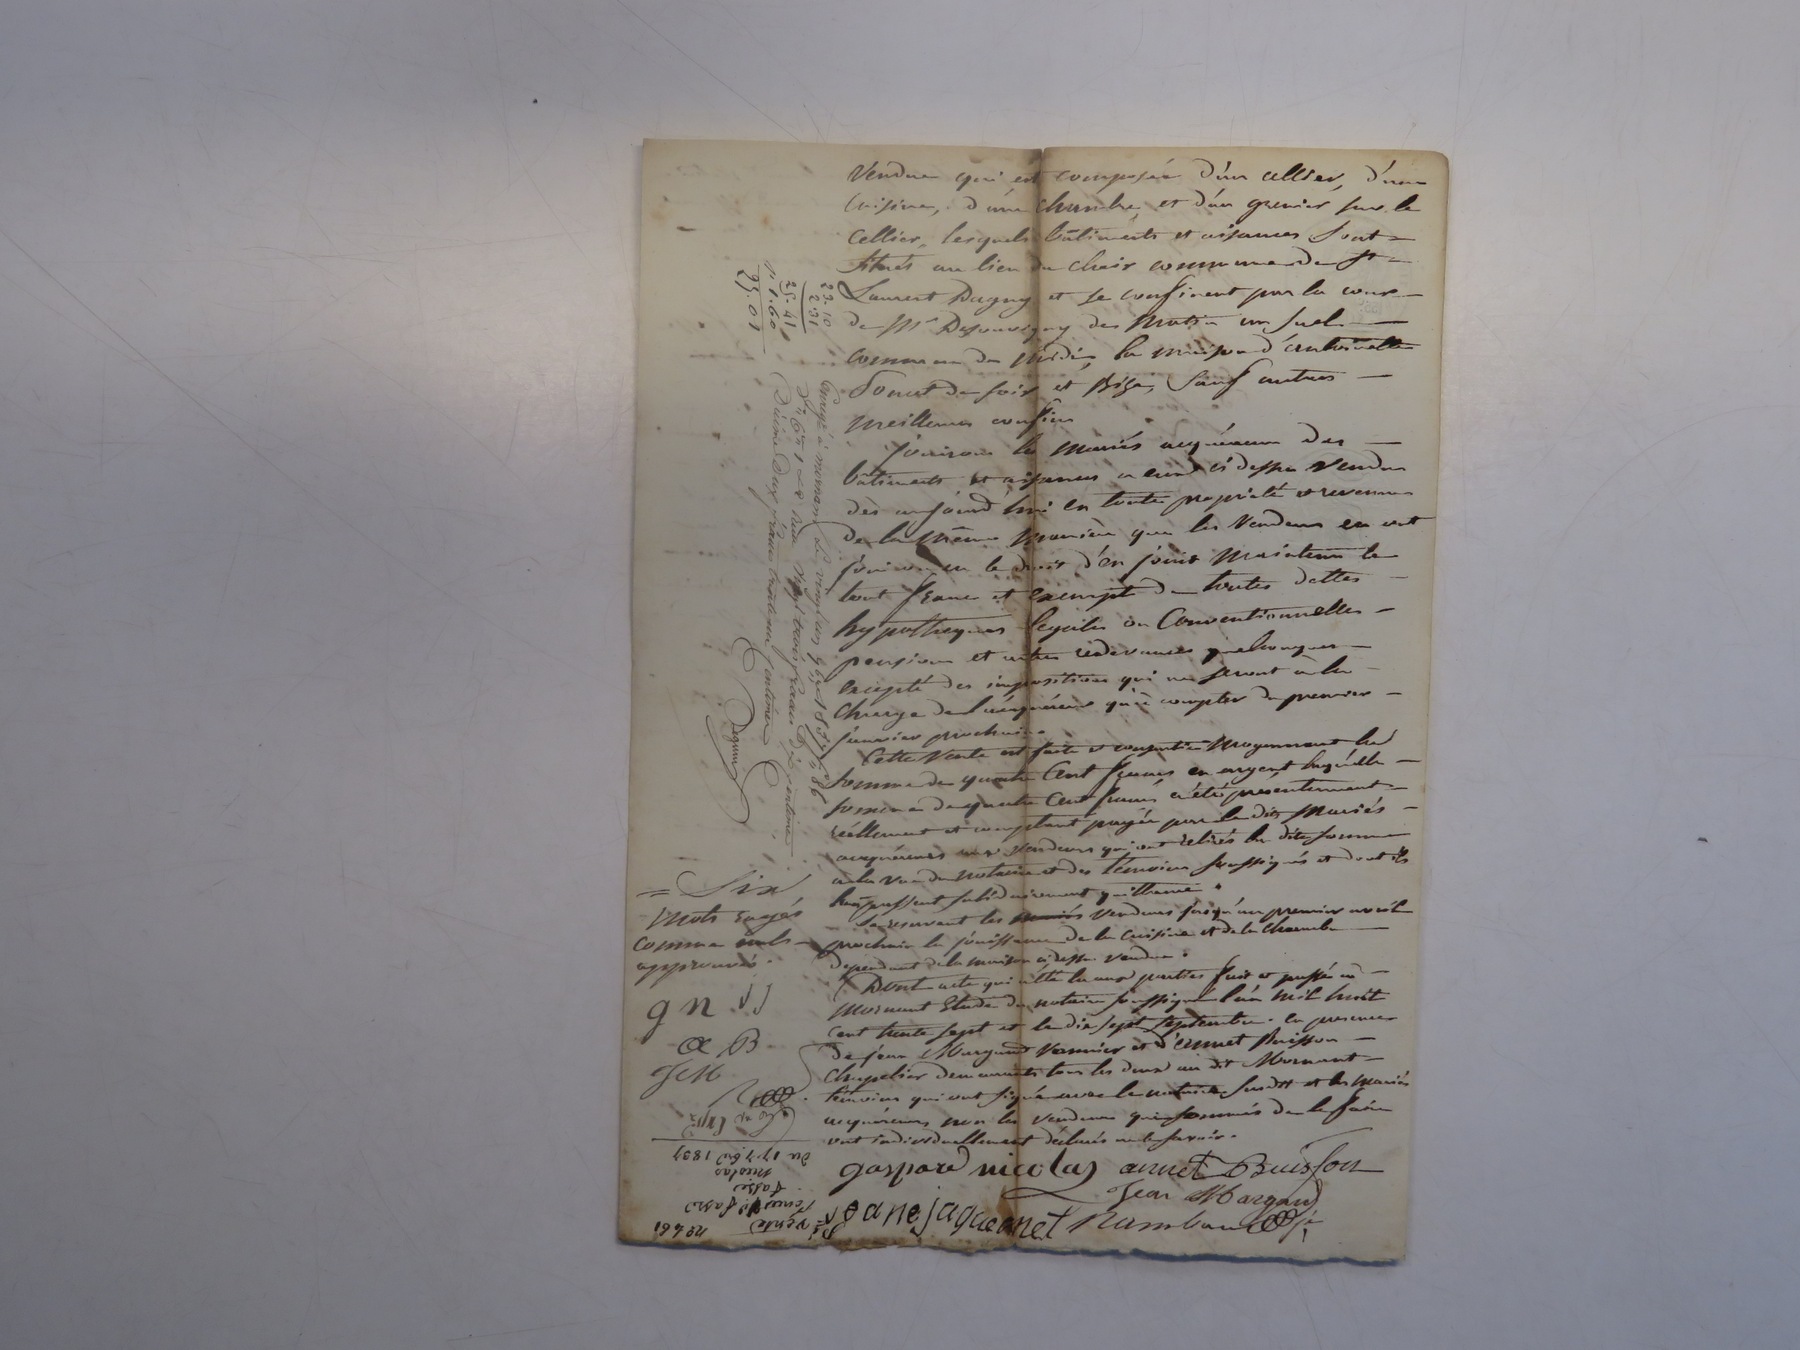 Vendue qui est composée d'un cellier, d'une
Cuisine, d'une chambre, et d'un grenier sur le
Cellier, lesquels bâtiments et aisances sont
situés au lieu du chair commune de St
Laurent Dagny et se confinent par la cour
de Mr Desouvigny de Matin un suel
commun de Midi, la maison d'antoinette
de soir et Bize, sauf autres
meilleurs confins
Jouiront les mariés acquéreurs des
bâtiments et aisances ci dessus vendus
dès aujourd'hui en toute propriété et revenus
de la même manière que les Vendeurs en ont
joui ou eu le droit d'en jouir Maintenu le
tout franc et exempt de toutes dettes
hypothèques légales ou Conventionnelles
pensions et autres redevances quelconques
excepté des impositions qui ne seront à la
Charge de l'acquéreur qu'à compter du premier
Janvier prochain.
Cette Vente est faite et consentie Moyennant la
somme de quatre Cent francs en argent laquelle
somme de quatre Cent francs a été présentement
réellement et comptant payée par les dits Mariés
acquéreurs aux vendeurs qui ont retiré la dite somme
à la vue du notaire et des témoins soussignés et dont ils
leur passent quittance.
Se reservent les mariés vendeurs jusqu'au premier avril
prochain la jouissance de la Cuisine et de la Chambre
dépendant de la maison ci dessus vendue.
Dont acte qui a été lu aux parties fait et passé à
Mornant Etude du notaire soussigné l'an mil huit
cent trente sept et le dix sept septembre. en présence
de Jean Margand Vannier et d'ennet Buisson
Chapelier demeurants tous les deux au dit Mornant
témoins qui ont signé avec le notaire susdit et les mariés
acquéreurs non les vendeurs qui sommés de le faire
ont individuellement déclaré ne le savoir.
gaspard nicolas annet Buisson
Jean Margand
Jeane jaqueanet
23.10
2.31
25.41
1.60
27.01
Enregé à mornant Le vingt six 7bre 1837
Reçu vingt trois francs dix centimes
Décime deux francs trente un centimes
= Six
Mots rayés
comme nuls
approuvés.
g n J J
a B
J M
du 17 7bre 1837
Nicolas
Vente
n° 461